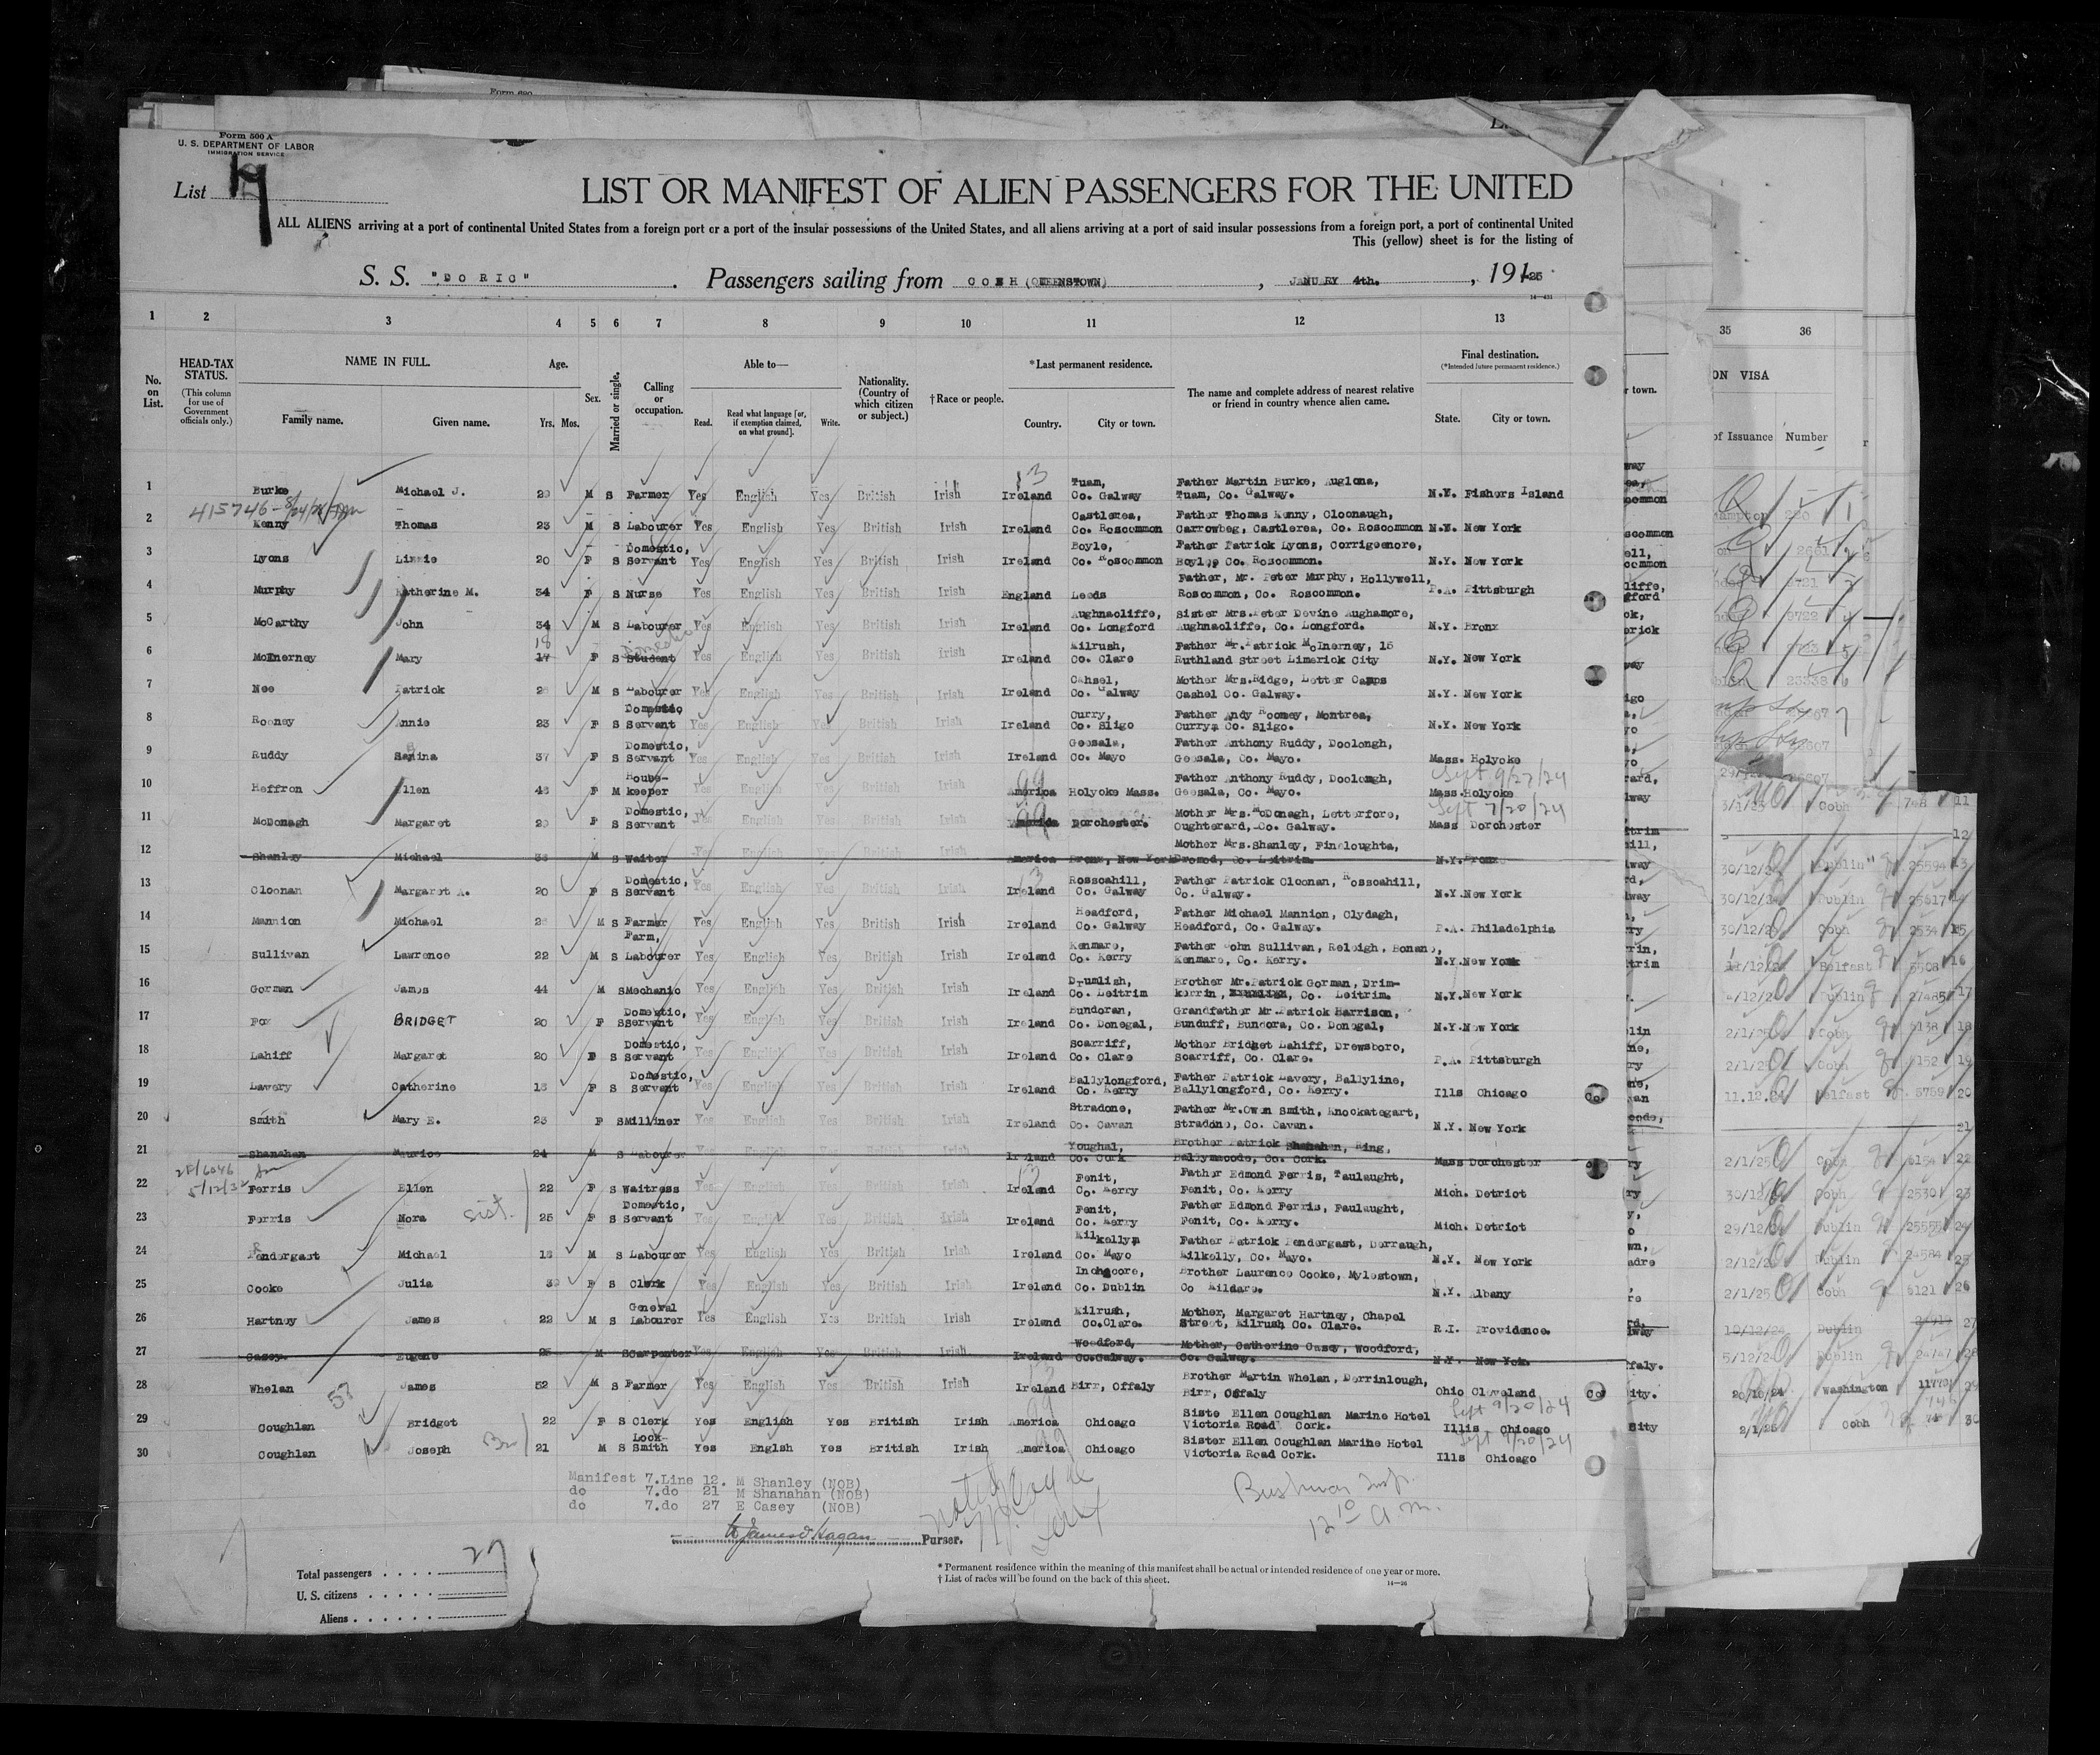 Form 500 A
U. S. DEPARTMENT OF LABOR
IMMIGRATION SERVICE
List
LIST OR MANIFEST OF ALIEN PASSENGERS FOR THE UNITED
ALL ALIENS arriving at a port of continental United States from a foreign port or a port of the insular possessions of the United States, and all aliens arriving at a port of said insular possessions from a foreign port, a port of continental United
This (yellow) sheet is for the listing of
S. S. "DORIC". Passengers sailing from COBH (QUEENSTOWN), JANUARY 4th., 191 25
1 2 3 4 5 6 7 8 9 10 11 12 13
No. on List.
HEAD-TAX STATUS.
(This column for use of Government officials only.)
NAME IN FULL.
Family name. Given name.
Age.
Yrs. Mos.
Sex.
Married or single.
Calling or occupation.
Able to—
Read. Read what language [or, if exemption claimed, on what ground]. Write.
Nationality. (Country of which citizen or subject.)
†Race or people.
*Last permanent residence.
Country. City or town.
The name and complete address of nearest relative or friend in country whence alien came.
Final destination.
(*Intended future permanent residence.)
State. City or town.
1 Burke Michael J. 29 M S Farmer Yes English Yes British Irish Ireland Tuam, Co. Galway Father Martin Burke, Tuam, Co. Galway. N.Y. Fishers Island
2 Kenny Thomas 23 M S Labourer Yes English Yes British Irish Ireland Castlerea, Co. Roscommon Father Thomas Kenny, Cloonaugh, Carrowbeg, Castlerea, Co. Roscommon N.Y. New York
3 Lyons Lizzie 20 F S Domestic, Servant Yes English Yes British Irish Ireland Boyle, Co. Roscommon Father Patrick Lyons, Corrigeenore, Boyle, Co. Roscommon. N.Y. New York
4 Murphy Katherine M. 34 F S Nurse Yes English Yes British Irish England Leeds Father, Mr. Peter Murphy, Hollywell, Roscommon, Co. Roscommon. P.A. Pittsburgh
5 McCarthy John 34 M S Labourer Yes English Yes British Irish Ireland Aughnacliffe, Co. Longford Sister Mrs. Peter Devine Aughamore, Aughnacliffe, Co. Longford. N.Y. Bronx
6 McInerney Mary 17 18 F S Student Yes English Yes British Irish Ireland Kilrush, Co. Clare Father Mr. Patrick McInerney, 15 Ruthland Street Limerick City N.Y. New York
7 Nee Patrick M S Labourer Yes English Yes British Irish Ireland Cahsel, Co. Galway Mother Mrs. Ridge, Letter Camps Cashel Co. Galway. N.Y. New York
8 Rooney Annie 23 F S Domestic Servant Yes English Yes British Irish Ireland Curry, Co. Sligo Father Andy Rooney, Montrea, Curry, Co. Sligo. N.Y. New York
9 Ruddy 37 F S Domestic, Servant Yes English Yes British Irish Ireland Geesala, Co. Mayo Father Anthony Ruddy, Doolough, Geesala, Co. Mayo. Mass. Holyoke
10 Heffron Ellen F M keeper Yes English Yes British Irish America Holyoke Mass. Father Anthony Ruddy, Doolough, Geesala, Co. Mayo. Mass. Holyoke Sept 9/27/24
11 McDonagh Margaret 29 F S Domestic, Servant Yes English Yes British Irish America Dorchester. Mother Mrs. McDonagh, Letterfore, Oughterard, Co. Galway. Mass Dorchester Sept 7/20/24
12 Shanley Michael M S Waiter Yes English Yes British Irish America Bronx, New York Mother Mrs. Shanley, Fineloughta, Dromod, Co. Leitrim N.Y. Bronx
13 Cloonan Margaret A. 20 F S Domestic, Servant Yes English Yes British Irish Ireland Rosscahill, Co. Galway Father Patrick Cloonan, Rosscahill, Co. Galway. N.Y. New York
14 Mannion Michael M S Farmer Yes English Yes British Irish Ireland Headford, Co. Galway Father Michael Mannion, Clydagh, Headford, Co. Galway. P.A. Philadelphia
15 Sullivan Lawrence 22 M S Farm, Labourer Yes English Yes British Irish Ireland Kenmare, Co. Kerry Father John Sullivan, Releigh, Bonane, Kenmare, Co. Kerry. N.Y. New York
16 Gorman James 44 M S Mechanic Yes English Yes British Irish Ireland Drumlish, Co. Leitrim Brother Mr. Patrick Gorman, Drim-korrin, Co. Leitrim. N.Y. New York
17 Fox BRIDGET 20 F S Domestic, Servant Yes English Yes British Irish Ireland Bundoran, Co. Donegal, Grandfather Mr. Patrick Harrison, Bunduff, Bundora, Co. Donegal, N.Y. New York
18 Lahiff Margaret 20 F S Domestic, Servant Yes English Yes British Irish Ireland Scarriff, Co. Clare Mother Bridget Lahiff, Drewsboro, Scarriff, Co. Clare. P.A. Pittsburgh
19 Lavery Catherine 18 F S Domestic, Servant Yes English Yes British Irish Ireland Ballylongford, Co. Kerry Father Patrick Lavery, Ballyline, Ballylongford, Co. Kerry. Ills Chicago
20 Smith Mary E. 23 F S Milliner Yes English Yes British Irish Ireland Stradone, Co. Cavan Father Mr. Owen Smith, Knockategart, Stradone, Co. Cavan. N.Y. New York
21 Shanahan Maurice 24 M S Labourer Yes English Yes British Irish Ireland Youghal, Co. Cork Brother Patrick Shanahan, Ring, Ballymacode, Co. Cork. Mass Dorchester
22 Ferris Ellen 22 F S Waitress Yes English Yes British Irish Ireland Fenit, Co. Kerry Father Edmond Ferris, Taulaught, Fenit, Co. Kerry Mich. Detriot
23 Ferris Nora sist. 25 F S Domestic, Servant Yes English Yes British Irish Ireland Fenit, Co. Kerry Father Edmond Ferris, Paulaught, Fenit, Co. Kerry. Mich. Detriot
24 Pendergast Michael 18 M S Labourer Yes English Yes British Irish Ireland Kilkelly, Co. Mayo Father Patrick Pendergast, Derraugh, Kilkelly, Co. Mayo. N.Y. New York
25 Cooke Julia F S Clerk Yes English Yes British Irish Ireland Inchacore, Co. Dublin Brother Laurence Cooke, Mylestown, Co Kildare. N.Y. Albany
26 Hartney James 22 M S General Labourer Yes English Yes British Irish Ireland Kilrush, Co. Clare. Mother, Margaret Hartney, Chapel Street, Kilrush Co. Clare. R.I. Providence.
27 Casey Eugene 25 M S Carpenter Yes English Yes British Irish Ireland Woodford, Co. Galway. Mother, Catherine Casey, Woodford, Co. Galway. N.Y. New York
28 Whelan James 52 M S Farmer Yes English Yes British Irish Ireland Birr, Offaly Brother Martin Whelan, Derrinlough, Birr, Offaly Ohio Cleveland
29 Coughlan Bridget 22 F S Clerk Yes English Yes British Irish America Chicago Siste Ellen Coughlan Marine Hotel Victoria Road Cork. Illis Chicago Sept 9/20/24
30 Coughlan Joseph 21 M S Lock Smith Yes Englsh Yes British Irish America Chicago Sister Ellen Coughlan Marine Hotel Victoria Road Cork. Ills Chicago Sept 9/20/24
Manifest 7. Line 12. M Shanley (NOB)
do 7. do 21 M Shanahan (NOB)
do 7. do 27 E Casey (NOB)
Purser.
12 10 a m.
Total passengers 27
U. S. citizens
Aliens
* Permanent residence within the meaning of this manifest shall be actual or intended residence of one year or more.
† List of races will be found on the back of this sheet.
14—26
35 36
ON VISA
of Issuance Number
3/1/25 Cobh 748 11
12
30/12/24 Dublin 25594 13
30/12/24 Dublin 25617 14
30/12/24 Cobh 2534 15
Belfast 5508 16
4/12/24 Dublin 27485 17
2/1/25 Cobh 6138 18
2/1/25 Cobh 6152 19
11.12.24 Belfast 5759 20
21
2/1/25 Cobh 6154 22
30/12/24 Cobh 2530 23
29/12/24 Dublin 25555 24
2/12/24 Dublin 24584 25
2/1/25 Cobh 6121 26
19/12/24 Dublin 27
5/12/24 Dublin 24747 28
20/10/24 Washington 29
2/1/25 Cobh 30